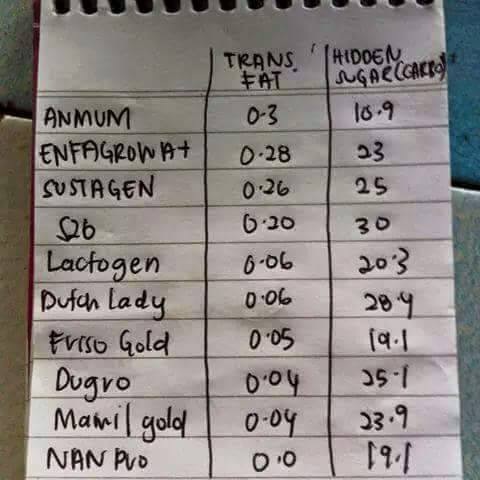 TRANS. HIDDEN
FAT SUGAR(CARBO)
ANMUM 0.3
ENFAGROW A+ 0.28 23
SUSTAGEN 0.26 25
S26 0.20 30
Lactogen 0.06 20.3
Dutch Lady 0.06 28.4
Friso Gold 0.05 19.1
Dugro 0.04 25.1
Mamil gold 0.04 23.9
NAN PRO 0.0 19.1